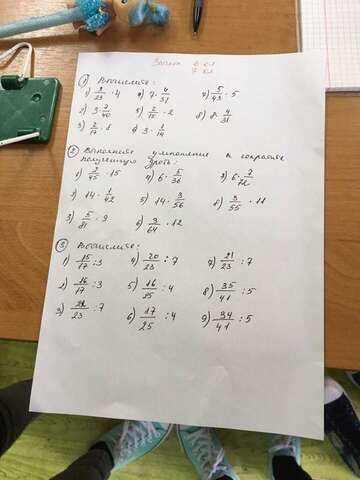 6 кл
7 кл
① Вычислите:
1) 3/23 · 4 4) 7 · 4/31 7) 5/43 · 5
2) 3 · 7/40 5) 2/15 · 2 8) 8 · 4/31
3) 2/17 · 8 6) 3 · 1/14
② Выполните умножение и сократите
полученную дробь:
1) 2/45 · 15 4) 6 · 5/36 7) 6 · 7/72
2) 14 · 1/42 5) 14 · 3/56 8) 3/55 · 11
3) 5/81 · 9 6) 3/64 · 12
③ Вычислите:
1) 15/17 : 3 4) 20/23 : 7 7) 21/23 : 7
2) 16/17 : 3 5) 16/25 : 4 8) 35/41 : 5
3) 21/23 : 7 6) 17/25 : 4 9) 34/41 : 5